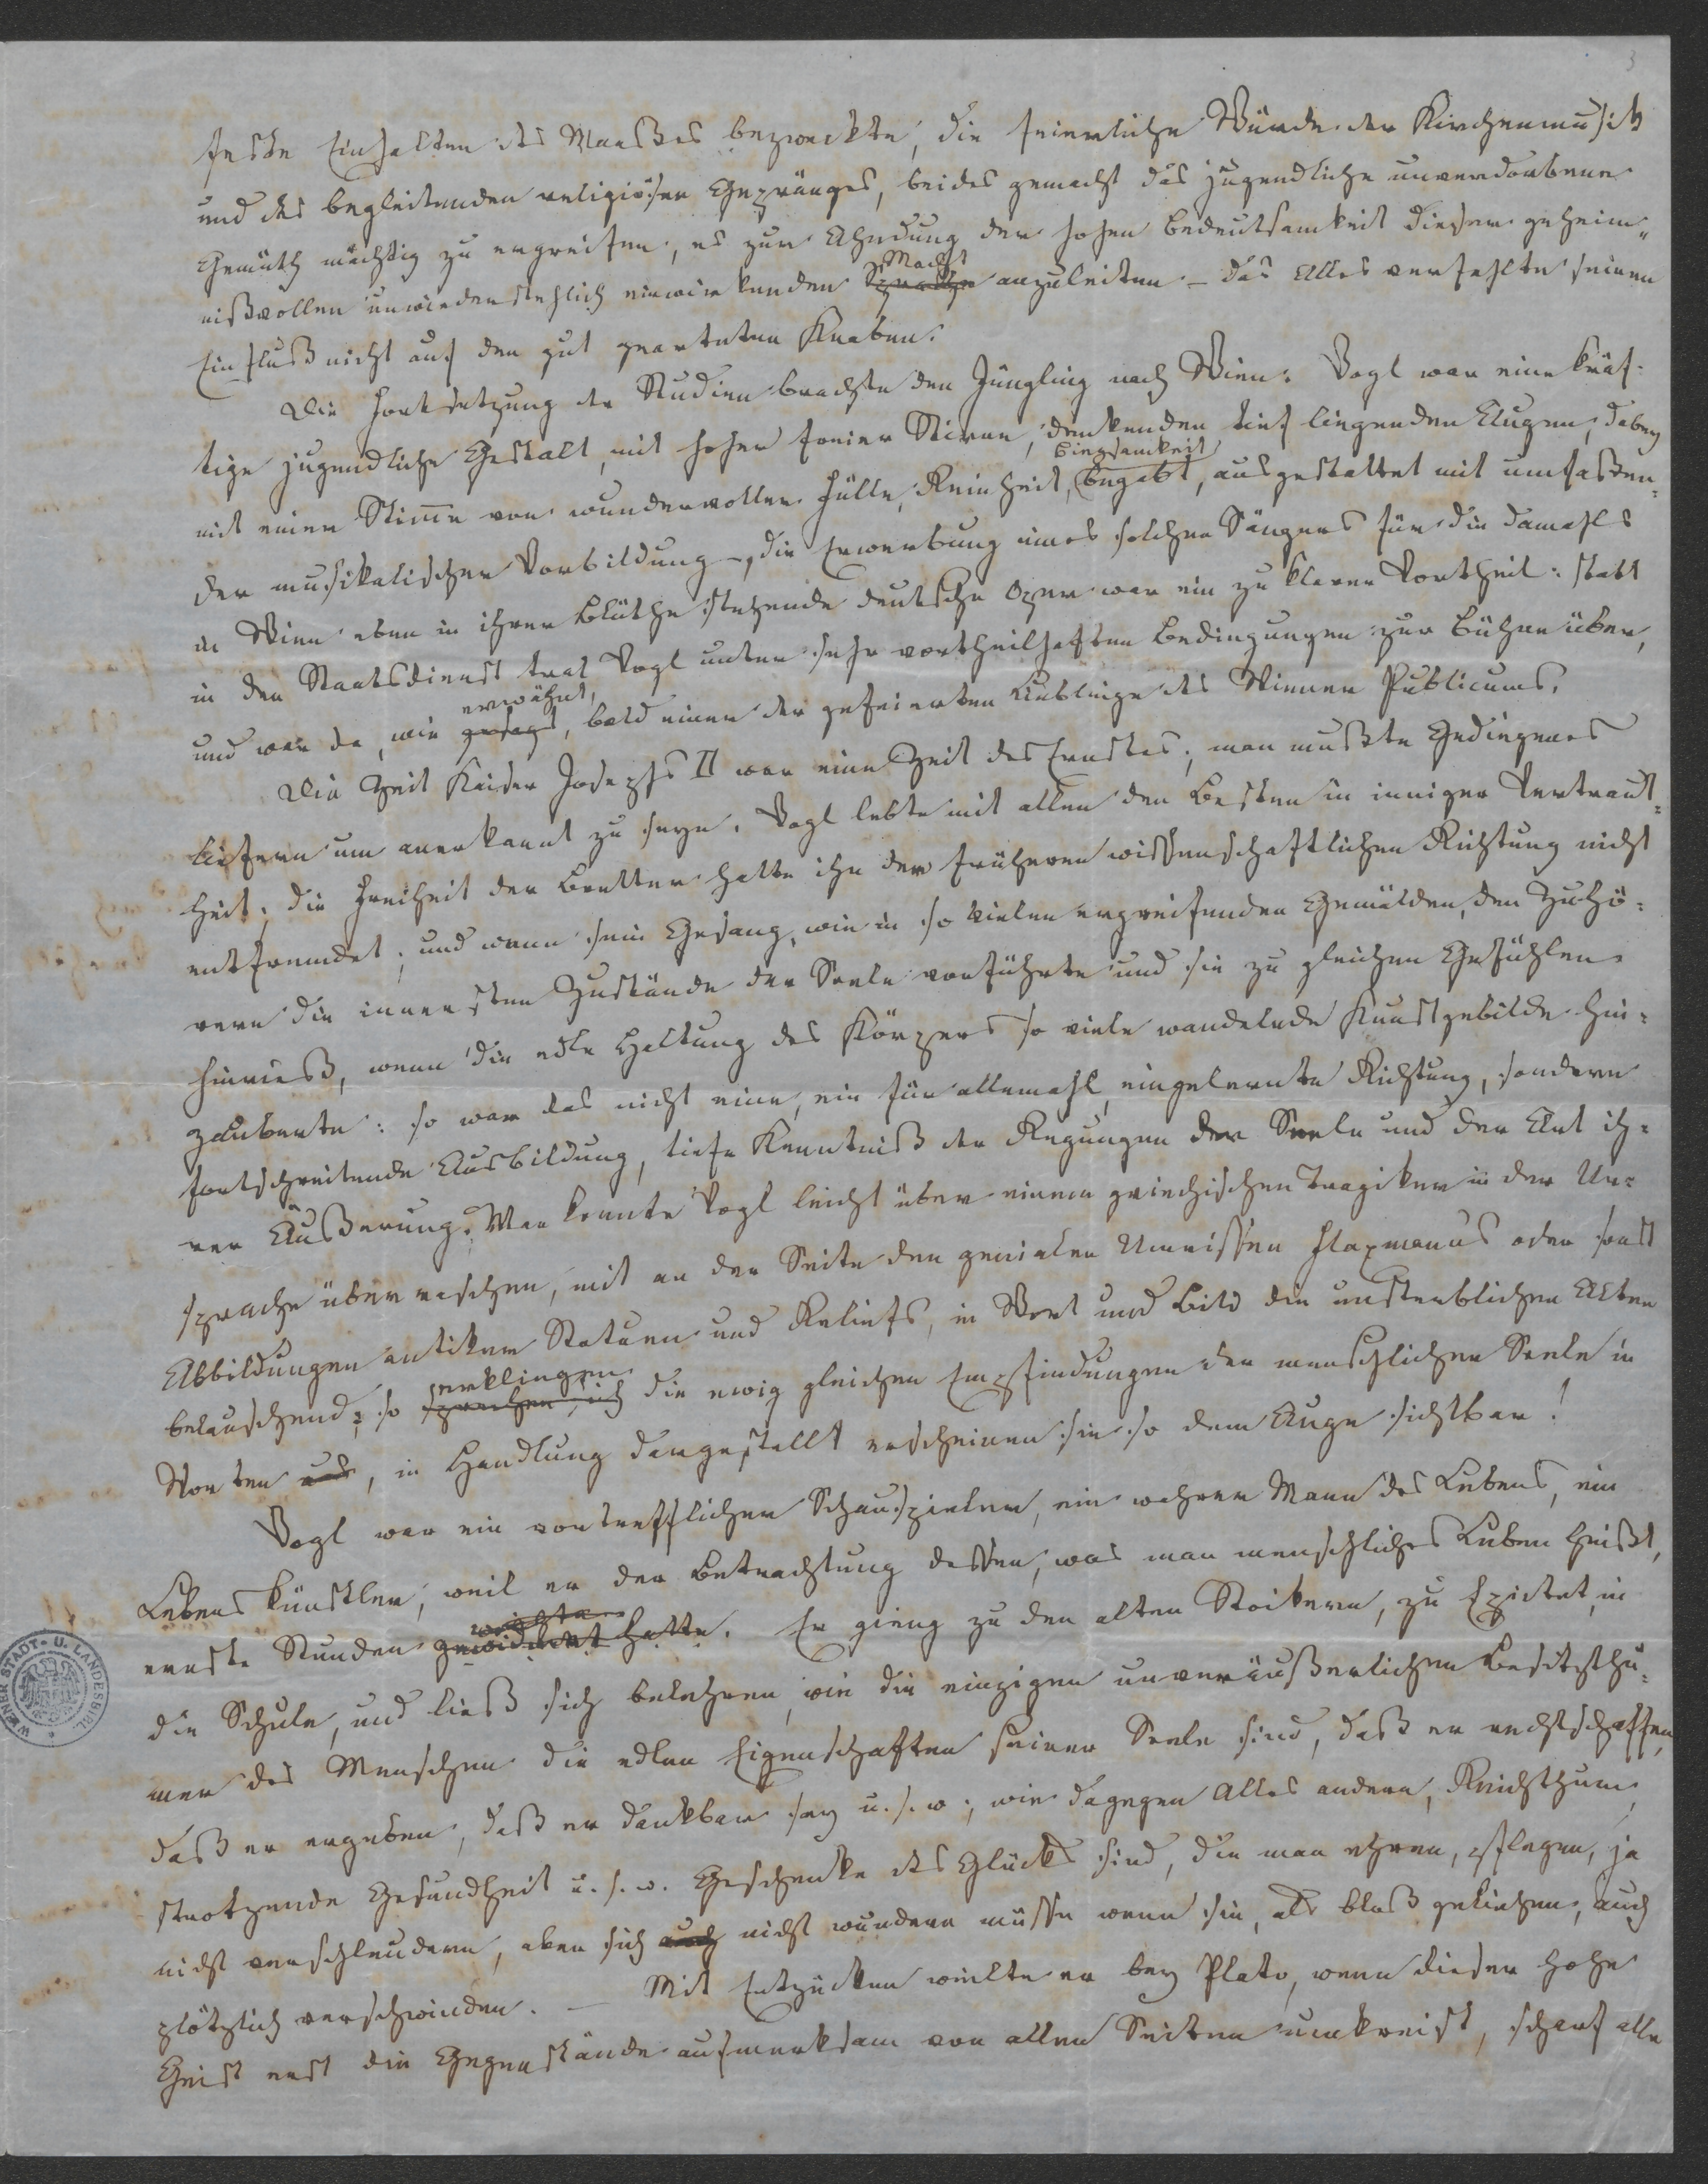 3
feste Einhalten des Maaßes bezweckte, die feierliche Würde der Kirchenmusik
und des begleitenden religiösen Gepränges, beides gemacht das jugendliche unverdorbene
Gemüth mächtig zu ergreifen, es zur Ahndung der hohen Bedeutsamkeit dieser geheim„
Macht
nißvollen unwiederstehlich einwirkenden Sprache anzuleiten – das Alles verfehlte seinen
Einfluß nicht auf den gut gearteten Knaben.
Die Fortsetzung der Studien brachte den Jüngling nach Wien. Vogl war eine kräf-
tige jugendliche Gestalt, mit hoher freier Stirne, denkenden tief liegenden Augen, dabey
Biegsamkeit
mit einer Stimme von wundervoller Fülle, Reinheit, begabt, ausgestattet mit umfaßen„
der musikalischer Vorbildung –, die Erwerbung eines solchen Sängers für die damahls
in Wien eben in ihrer Blüthe stehende deutsche Oper war ein zu klarer Vortheil: statt
in den Staatsdienst trat Vogl unter sehr vortheilhaften Bedingungen zur Bühne über,
erwähnt,
und war da, wie gesagt, bald einer der gefeierten Lieblinge des Wiener Publicums.
Die Zeit Kaiser Josephs II war eine Zeit des Ernstes; man mußte Gediegenes
liefern um anerkannt zu seyn. Vogl lebte mit allen den Besten in inniger Vertraut=
heit; die Freiheit der Bretter hatte ihn der früheren wissenschaftlichen Richtung nicht
entfremdet; und wenn sein Gesang, wie in so vielen ergreifenden Gemälden, den Zuhö=
rern die innersten Zustände der Seele vorführte und sie zu gleichen Gefühlen
hinrieß, wenn die edle Haltung des Körpers so viele wandelnde Kunstgebilde hin=
zauberte: so war das nicht eine, ein für allemahl, eingelernte Richtung, sondern
fortschreitende Ausbildung, tiefe Kenntniß der Regungen der Seele und der Art ih=
rer Äußerung. Man konnte Vogl leicht über einem griechischen Tragiker in der Ur=
sprache überraschen, mit an der Seite den genialen Umrissen Flaxmanns oder sonst
Abbildungen antiker Statuen und Reliefs, in Wort und Bild die unsterblichen Alten
erklingen
belauschend; so sprechen sich die ewig gleichen Empfindungen der menschlichen Seele in
Worten aus, in Handlung dargestellt erscheinen sie so dem Auge sichtbar!
Vogl war ein vortrefflicher Schauspieler, ein wahrer Mann des Lebens, ein
Lebenskünstler, weil er der Betrachtung dessen, was man menschliches Leben heißt,
weihte
ernste Stunden gewidmet hatte. Er gieng zu den alten Stoikern, zu Epictet, in
die Schule, und ließ sich belehren, wie die einzigen unveräußerlichen Besitzthü=
mer des Menschen die edlen Eigenschaften seiner Seele sind, daß er rechtschaffen,
daß er ergeben, daß er dankbar sey u. s. w.; wie dagegen Alles andere, Reichthum,
strotzende Gesundheit u. s. w. Geschenke des Glücks sind, die man ehren, pflegen, ja
nicht verschleudern, aber sich auch nicht wundern müsse wenn sie, als bloß geliehen, auch
plötzlich verschwinden. – Mit Entzücken weilte er bey Plato, wenn dieser hohe
Geist erst die Gegenstände aufmerksam von allen Seiten umkreist, scharf alle
WIENER STADT- U. LANDESBIBL.